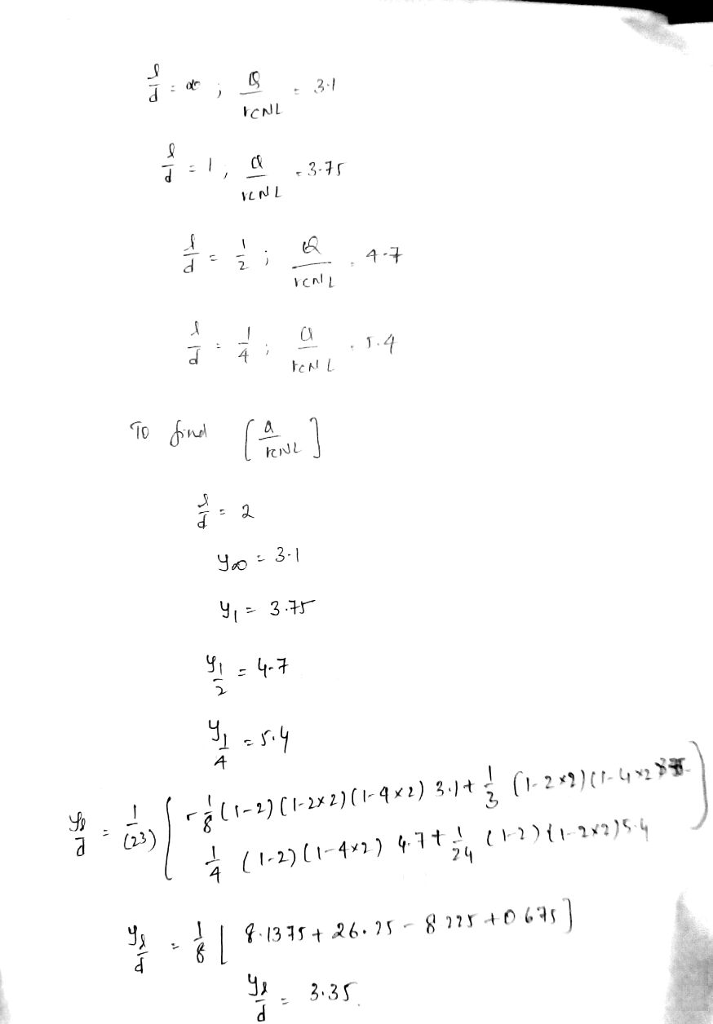 l/d = ∞ ; Q/rCNL = 3.1
l/d = 1 , Q/rCNL = 3.75
l/d = 1/2 ; Q/rCNL = 4.7
l/d = 1/4 ; Q/rCNL = 5.4
To find [Q/rCNL]
l/d = 2
y∞ = 3.1
y1 = 3.75
y1/2 = 4.7
y1/4 = 5.4
yl/d = 1/(23) [ -1/8 (1-2) (1-2×2) (1-4×2) 3.1 + 1/3 (1-2×2) (1-4×2
1/4 (1-2) (1-4×2) 4.7 + 1/24 (1-2) (1-2×2) 5.4 ]
yl/d = 1/8 [ 8.1375 + 26.25 - 8 225 + 0 675 ]
yl/d = 3.35.